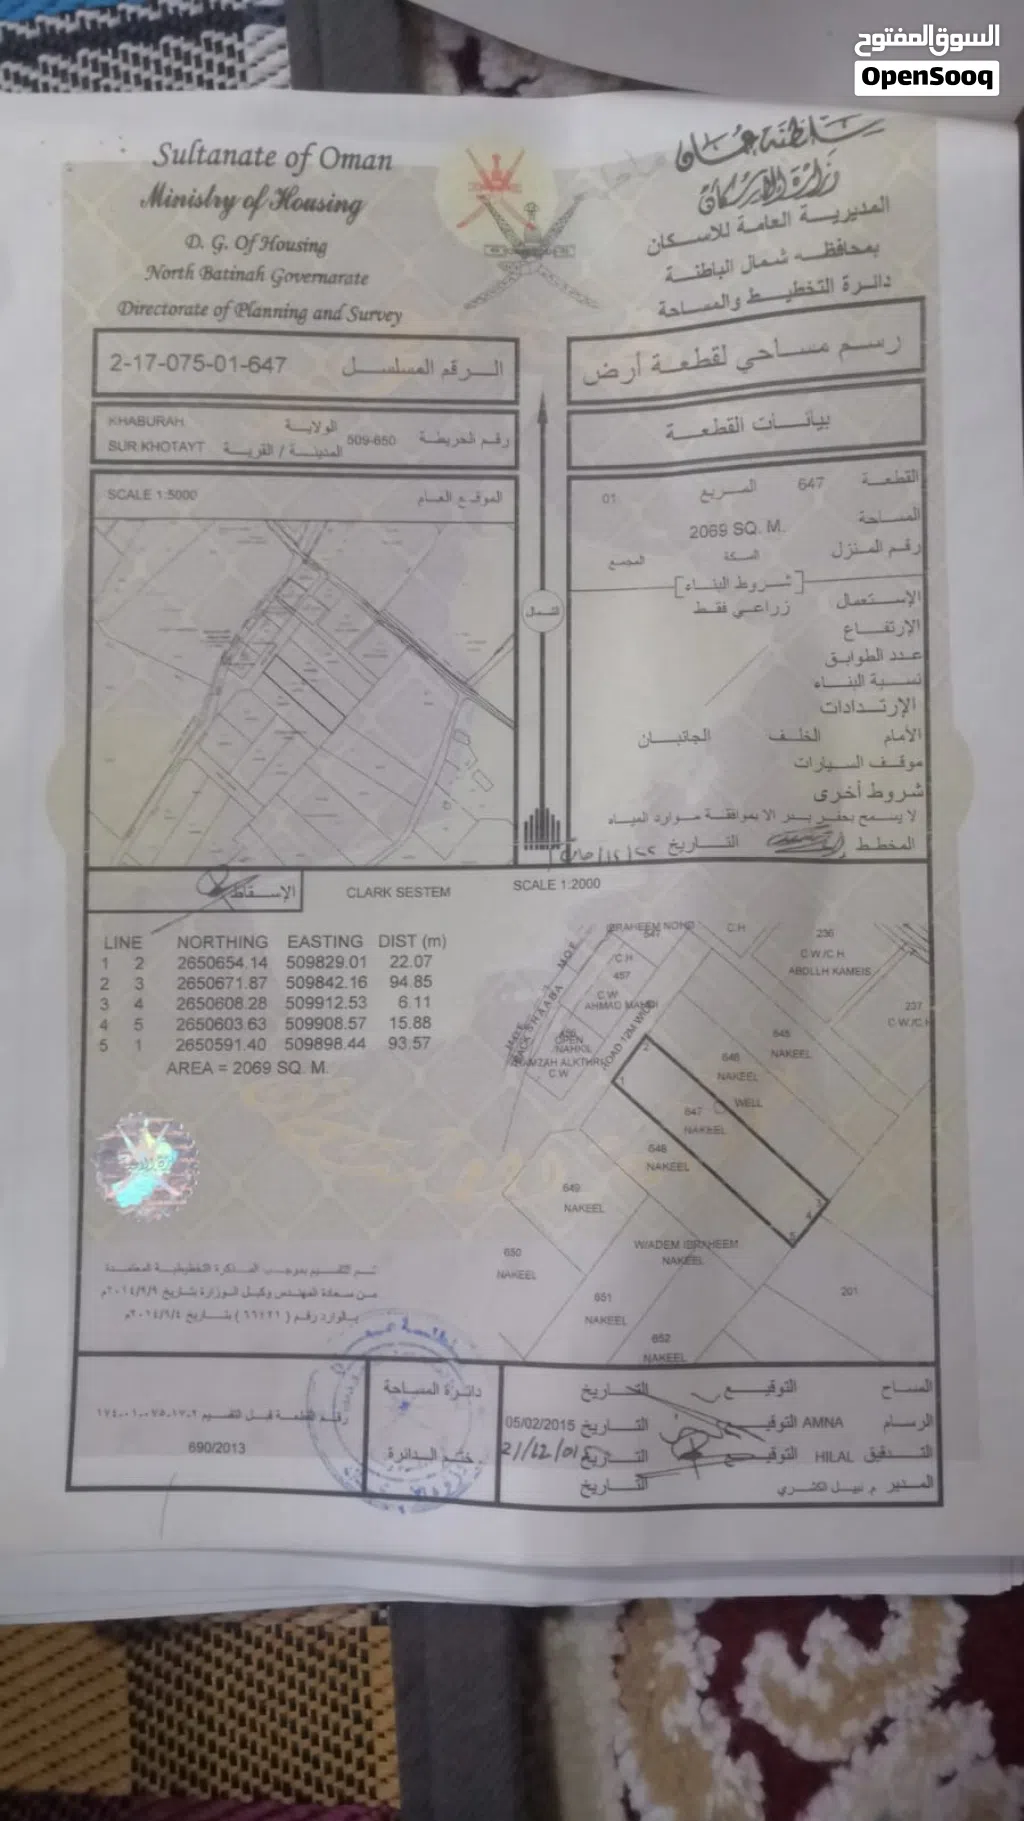 السوق المفتوح
OpenSooq
Sultanate of Oman
Ministry of Housing
D. G. Of Housing
North Batinah Governarate
Directorate of Planning and Survey
سلطنة عمان
وزارة الإسكان
المديرية العامة للاسكان
بمحافظة شمال الباطنة
دائرة التخطيط والمساحة
2-17-075-01-647 الرقم المسلسل
رسم مساحي لقطعة أرض
KHABURAH الولاية
SUR KHOTAYT المدينة / القرية
509-650 رقم الخريطة
بيانات القطعة
SCALE 1:5000 الموقع العام
الشمال
القطعة 647 المربع 01
المساحة 2069 SQ. M.
رقم المنزل السكة المجمع
[شروط البناء]
الإستعمال زراعي فقط
الإرتفاع
عدد الطوابق
نسبة البناء
الإرتدادات
الأمام الخلف الجانبان
موقف السيارات
شروط أخرى
لا يسمح بحفر بئر الا بموافقة موارد المياه
المخطط التاريخ
الإسقاط CLARK SESTEM SCALE 1:2000
LINE NORTHING EASTING DIST (m)
1 2 2650654.14 509829.01 22.07
2 3 2650671.87 509842.16 94.85
3 4 2650608.28 509912.53 6.11
4 5 2650603.63 509908.57 15.88
5 1 2650591.40 509898.44 93.57
AREA = 2069 SQ. M.
IBRAHEEM MOHD
C.H
236
C.W./C.H
ABDLLH KAMEIS
C.H
457
C.W
AHMAD MAHDI
237
C.W./C.H
ROAD 12M WIDE
OPEN
NAHKIL
HAMZAH ALKTHRI
C.W
645
NAKEEL
646
NAKEEL
WELL
647
NAKEEL
1
2
3
4
5
648
NAKEEL
649
NAKEEL
W/ADEM IBRAHEEM
NAKEEL
650
NAKEEL
201
651
NAKEEL
652
NAKEEL
تم التقسيم بموجب المذكرة التخطيطية المعتمدة
من سعادة المهندس وكيل الوزارة بتاريخ ٢٠١٤/٩/٩م
دائرة المساحة
ختم الدائرة
رقم القطعة قبل التقسيم
690/2013
المساح التوقيع التاريخ
الرسام AMNA التوقيع التاريخ 05/02/2015
التدقيق HILAL التوقيع التاريخ
المدير م نبيل الكشري التاريخ